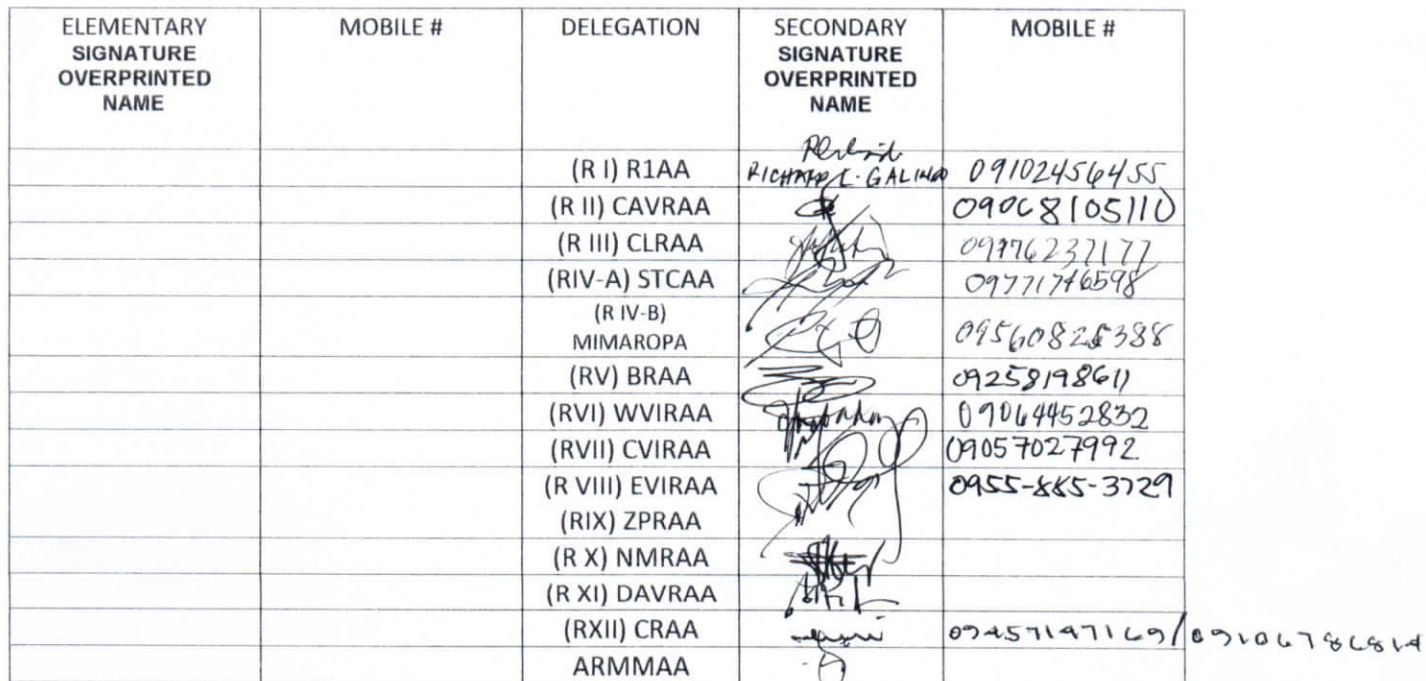 ELEMENTARY SIGNATURE OVERPRINTED NAME MOBILE # DELEGATION SECONDARY SIGNATURE OVERPRINTED NAME MOBILE #
(R I) R1AA RICHARD L. GALINDO 09102456455
(R II) CAVRAA 09068105110
(R III) CLRAA 09776237177
(RIV-A) STCAA 09771746598
(R IV-B)
MIMAROPA
(RV) BRAA 09258198611
(RVI) WVIRAA 09064452832
(RVII) CVIRAA 09057027992
(R VIII) EVIRAA 0955-885-3729
(RIX) ZPRAA
(R X) NMRAA
(R XI) DAVRAA
(RXII) CRAA
ARMMAA